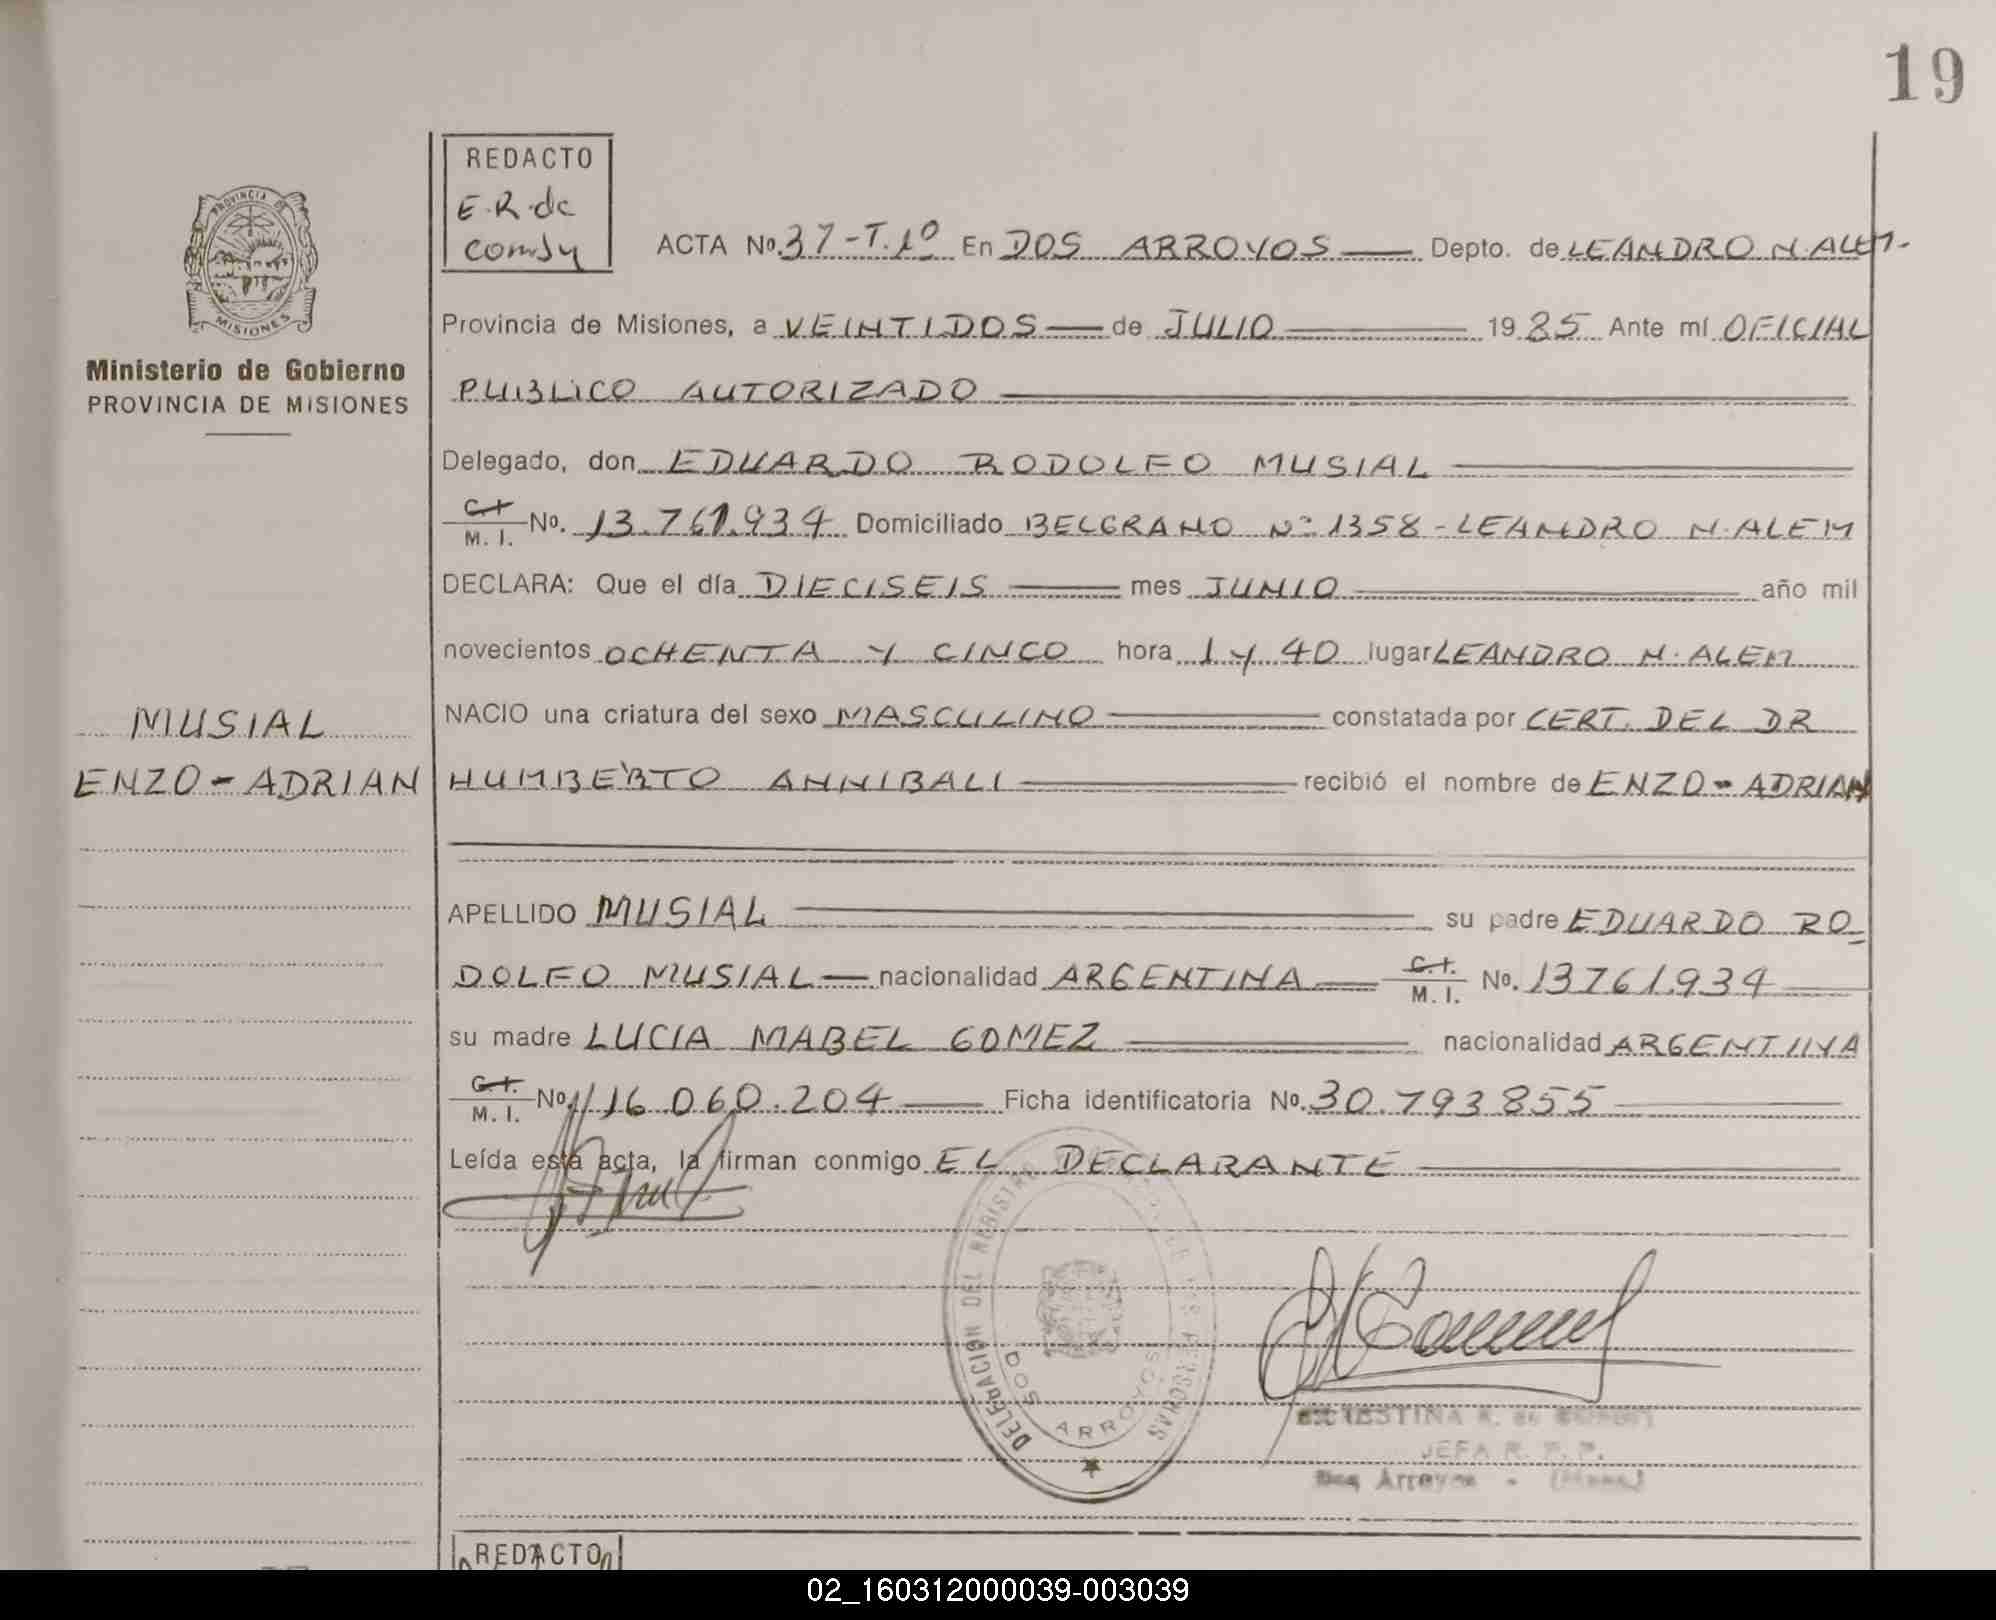 19
REDACTO
E.R.de
ACTA No. 37-T.1º En DOS ARROYOS Depto. de LEANDRO N. ALEM-
PROVINCIA DE MISIONES
Provincia de Misiones, a VEINTIDOS de JULIO 1985 Ante mí OFICIAL
Ministerio de Gobierno
PROVINCIA DE MISIONES
PUBLICO AUTORIZADO
Delegado, don EDUARDO RODOLFO MUSIAL
C.I. M. I. No. 13.761.934 Domiciliado BELGRANO Nº 1358 - LEANDRO N. ALEM
DECLARA: Que el día DIECISEIS mes JUNIO año mil
novecientos OCHENTA Y CINCO hora 1 y 40 lugar LEANDRO N. ALEM
MUSIAL
NACIO una criatura del sexo MASCULINO constatada por CERT. DEL DR
ENZO-ADRIAN
HUMBERTO ANNIBALI recibió el nombre de ENZO-ADRIAN
APELLIDO MUSIAL su padre EDUARDO RO-
DOLFO MUSIAL nacionalidad ARGENTINA C.I. M. I. No. 13761.934
su madre LUCIA MABEL GOMEZ nacionalidad ARGENTINA
C.I. M. I. No. 16.060.204 Ficha identificatoria No. 30.793.855
Leída esta acta, la firman conmigo EL DECLARANTE
DELEGACION DEL REGISTRO
DE LAS PERSONAS
DOS ARROYOS
JEFA R. P. P.
Dos Arroyos - (Mnes)
REDACTO
02_160312000039-003039